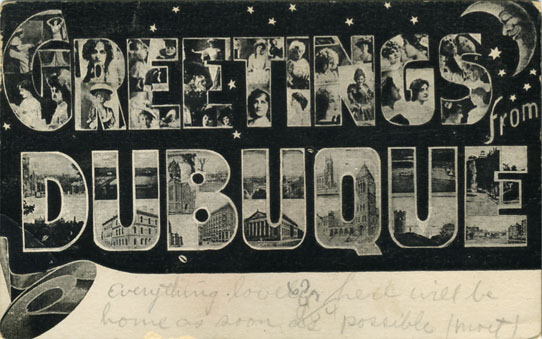 GREETINGS
from
DUBUQUE
Everything love will be
home as soon as possible